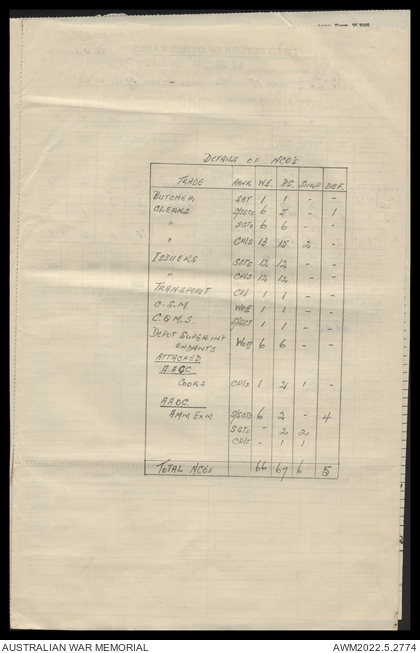 DETAILS OF NCO'S
TRADE RANK W.E. P.S. SURP DEF.
BUTCHER SGT 1 1 - -
CLERKS S/SGTS 6 5 - 1
" SGTS 6 6 - -
" CPLS 13 15 2 -
ISSUERS SGTS 12 12 - -
" CPLS 12 12 - -
TRANSPORT CPL 1 1 - -
C.S.M WOII 1 1 - -
C.Q.M.S. S/SGT 1 1 - -
DEPOT SUPERINT
ENDANTS WOII 6 6 - -
ATTACHED
A.A.C.C
COOKS CPLS 1 2 1 -
AAOC
AMM EXM S/SGTS 6 2 - 4
SGTS - 2 2
CPLS - 1 1
TOTAL NCOS 66 67 6 5
AUSTRALIAN WAR MEMORIAL AWM2022.5.2774